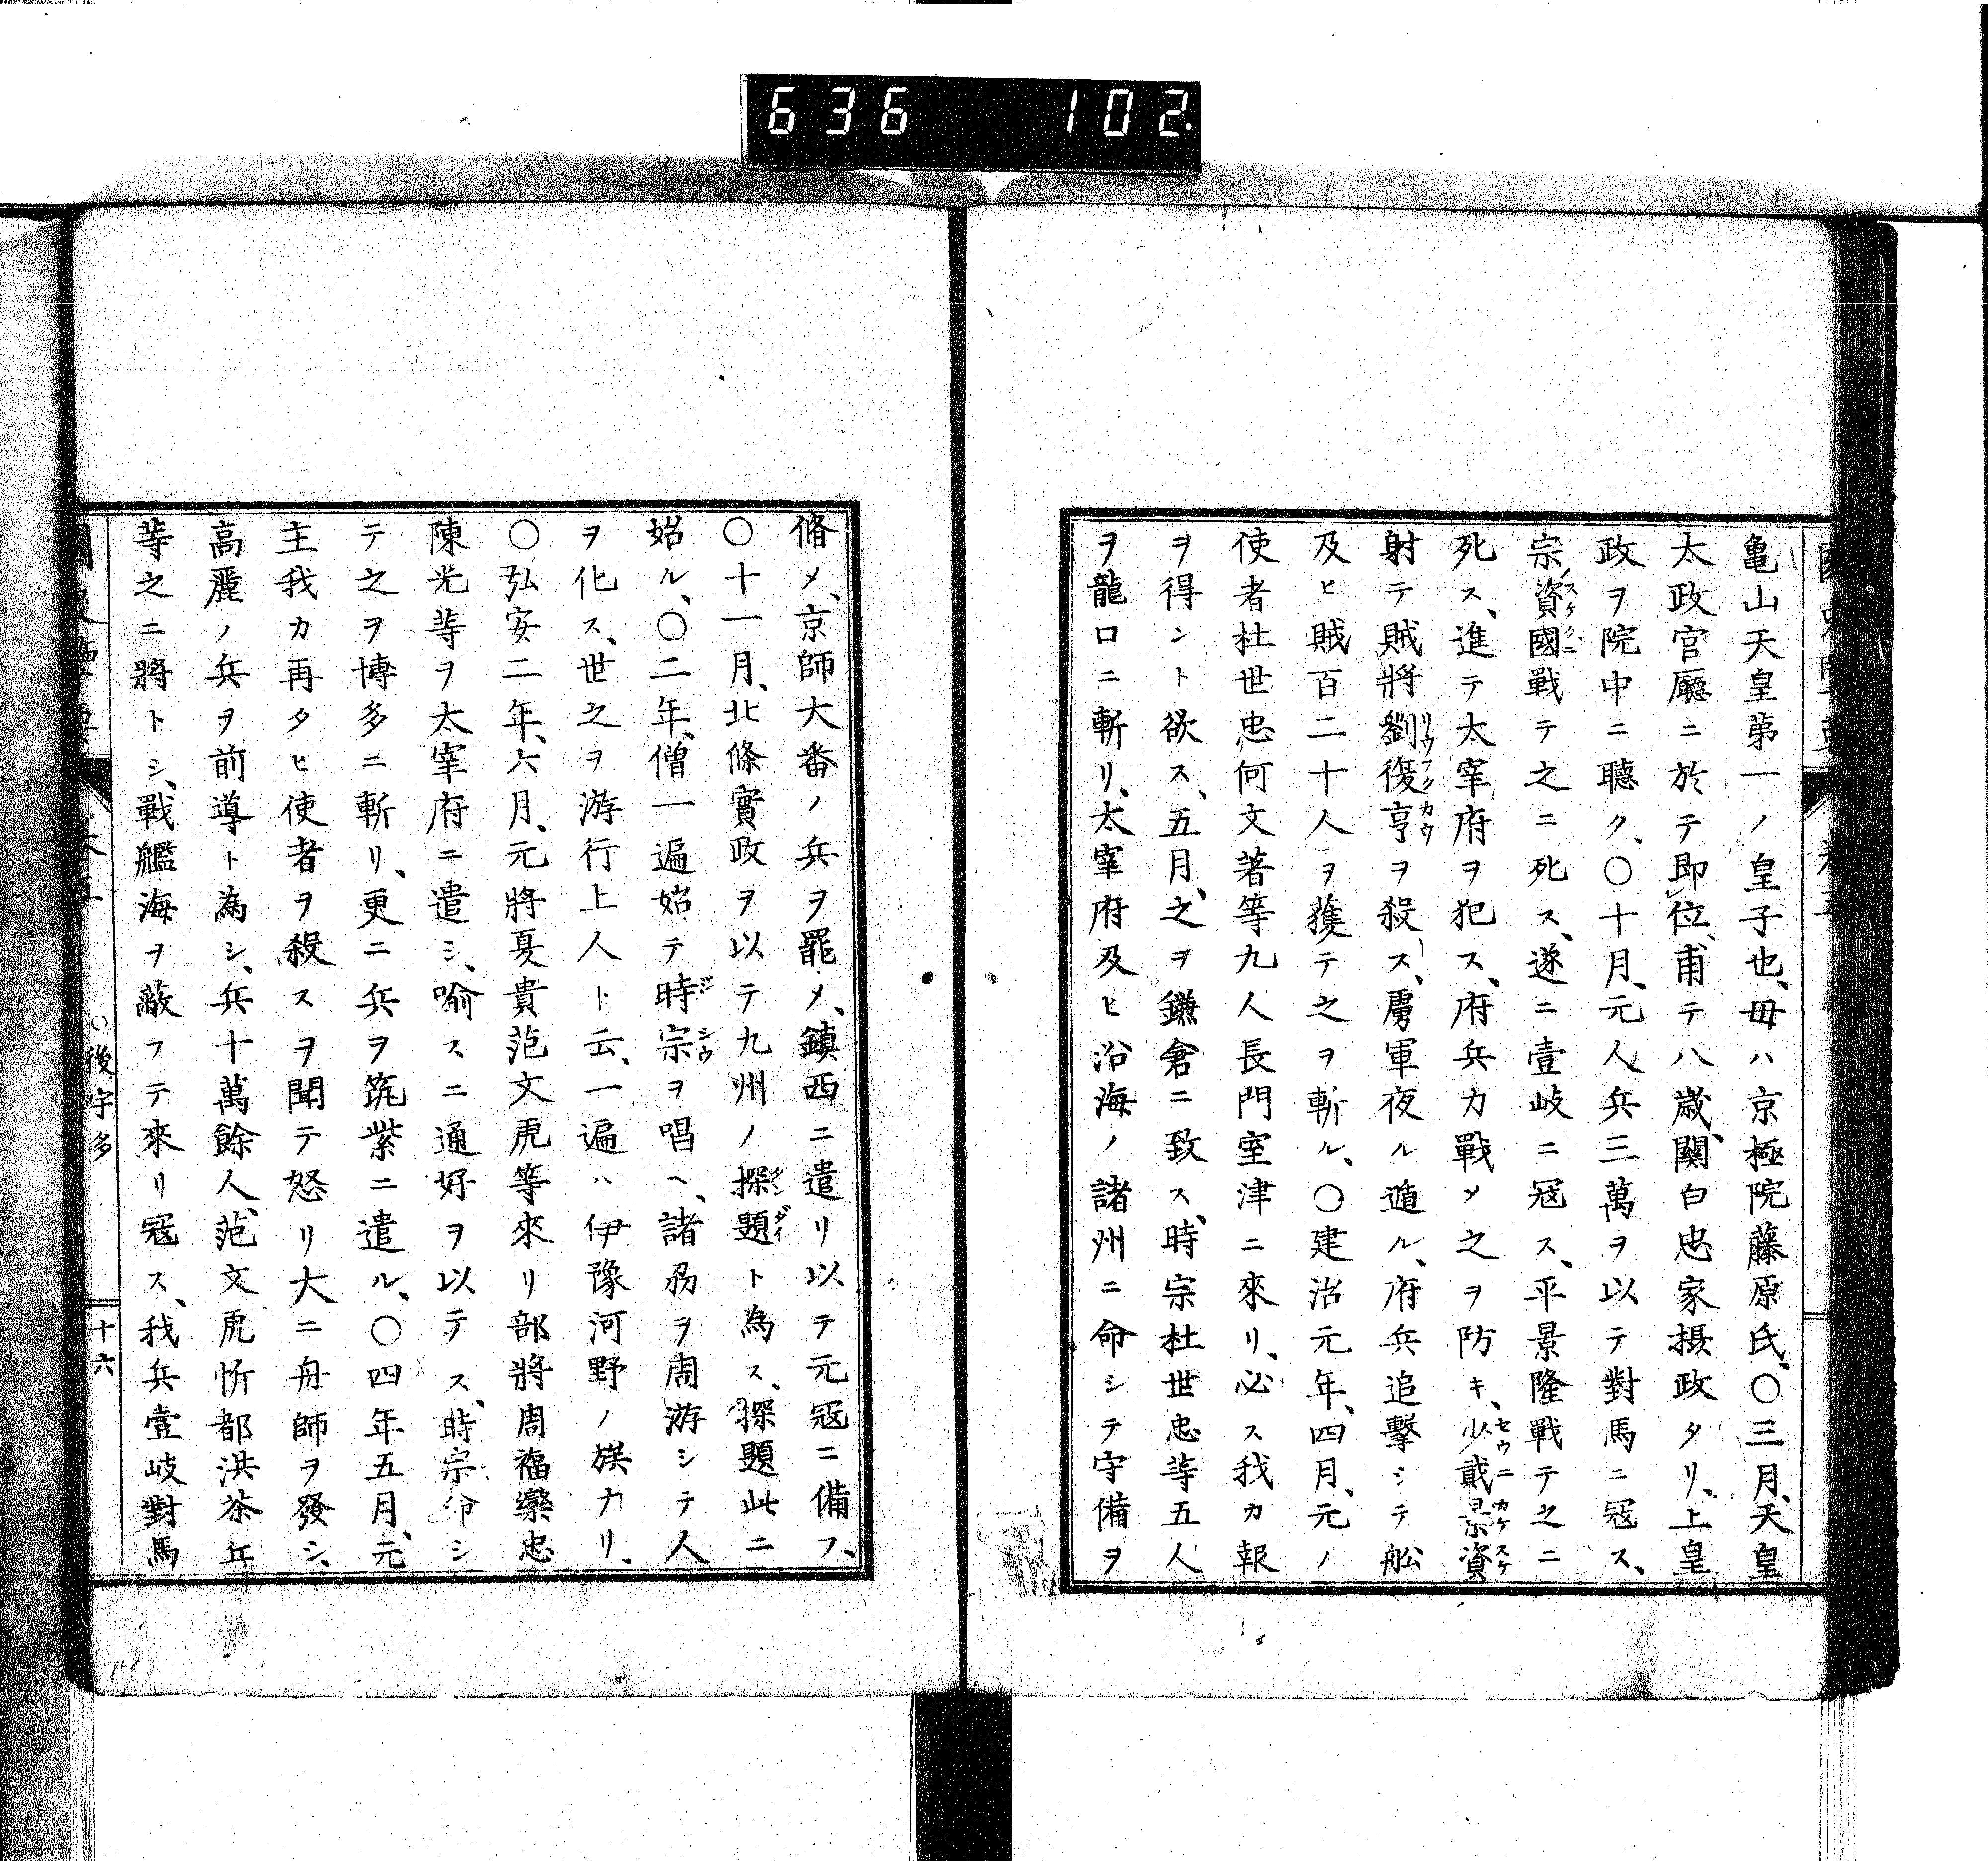 636 102.
亀山天皇第一ノ皇子也、母ハ京極院藤原氏、〇三月、天皇
太政官廳ニ於テ即位、甫テ八歳、關白忠家摂政タリ、上皇
政ヲ院中ニ聴ク、〇十月、元人兵三萬ヲ以テ對馬ニ冦ス、
宗資國戦テ之ニ死ス、遂ニ壹岐ニ冦ス、平景隆戦テ之ニ
ノスケクニ
死ス、進テ太宰府ヲ犯ス、府兵力戰ソ之ヲ防キ、少貳景資
セウニカケスケ
射テ賊將劉復亨ヲ殺ス、虜軍夜ル遁ル、府兵追擊シテ舩
リウフクカウ
及ヒ賊百二十人ヲ獲テ之ヲ斬ル、〇建治元年、四月、元ノ
使者杜世忠何文著等九人長門室津ニ來リ、必ス我カ報
ヲ得ント欲ス、五月、之ヲ鎌倉ニ致ス、時宗杜世忠等五人
ヲ龍口ニ斬リ、太宰府及ヒ沿海ノ諸州ニ命シテ守備ヲ
脩メ、京師大番ノ兵ヲ罷メ、鎮西ニ遣リ以テ元冦ニ備フ、
〇十一月、北條實政ヲ以テ九州ノ探題ト為ス、探題此ニ
タンダイ
始ル、〇二年、僧一遍始テ時宗ヲ唱ヘ、諸州ヲ周游シテ人
ジシウ
ヲ化ス、世之ヲ游行上人ト云、一遍ハ伊豫河野ノ族ナリ、
〇弘安二年、六月、元將夏貴范文虎等來リ部將周福欒忠
陳光等ヲ太宰府ニ遣シ、喻スニ通好ヲ以テス、時宗命シ
テ之ヲ博多ニ斬リ、更ニ兵ヲ筑紫ニ遣ル、〇四年五月、元
主我カ再タヒ使者ヲ殺スヲ聞テ怒リ大ニ舟師ヲ發シ、
高麗ノ兵ヲ前導ト為シ、兵十萬餘人、范文虎忻都洪茶丘
等之ニ將トシ、戰艦海ヲ蔽フテ來リ冦ス、我兵壹岐對馬
〇後宇多
十六